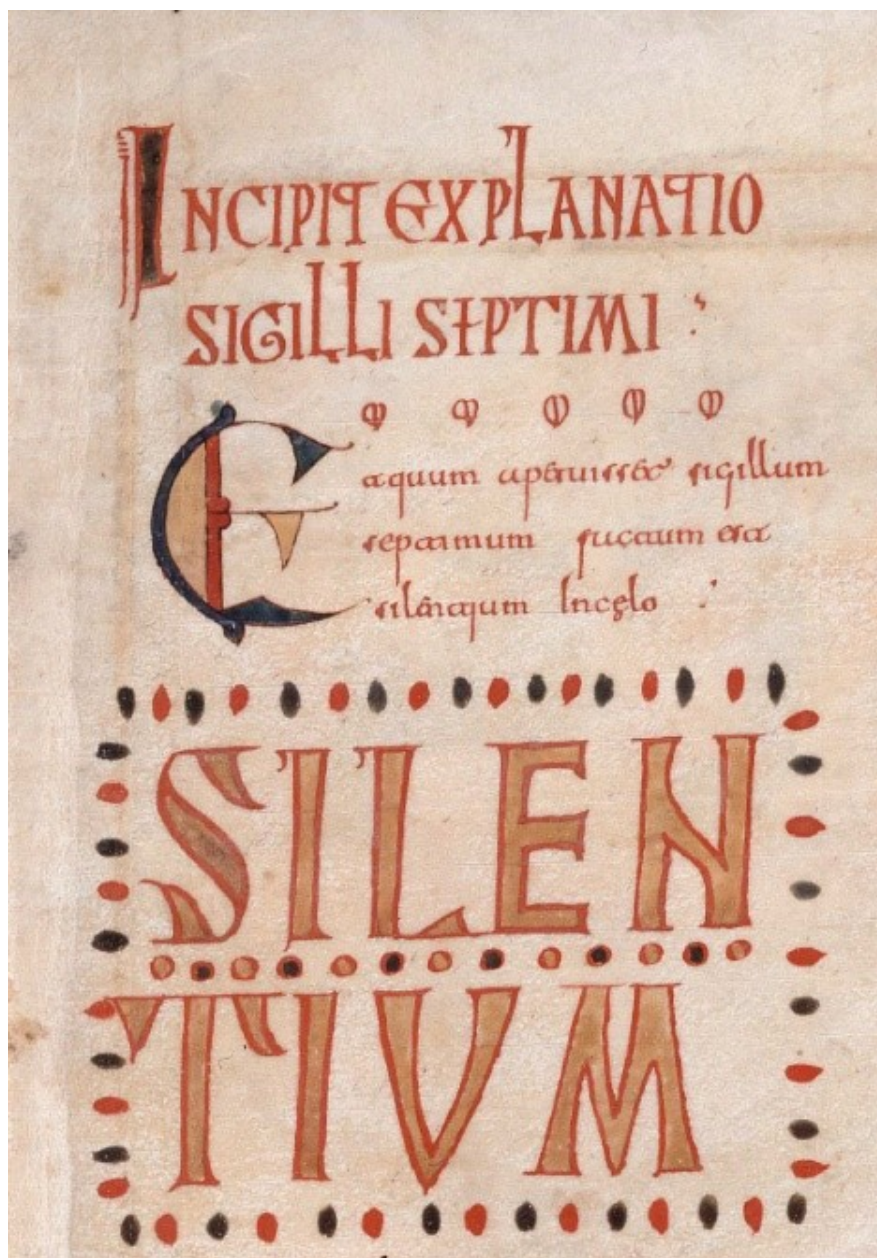 INCIPIT EXPLANATIO
SIGILLI SEPTIMI :
Et quum aperuisset sigillum
septimum factum est
silentium In cęlo
SILEN
TIUM